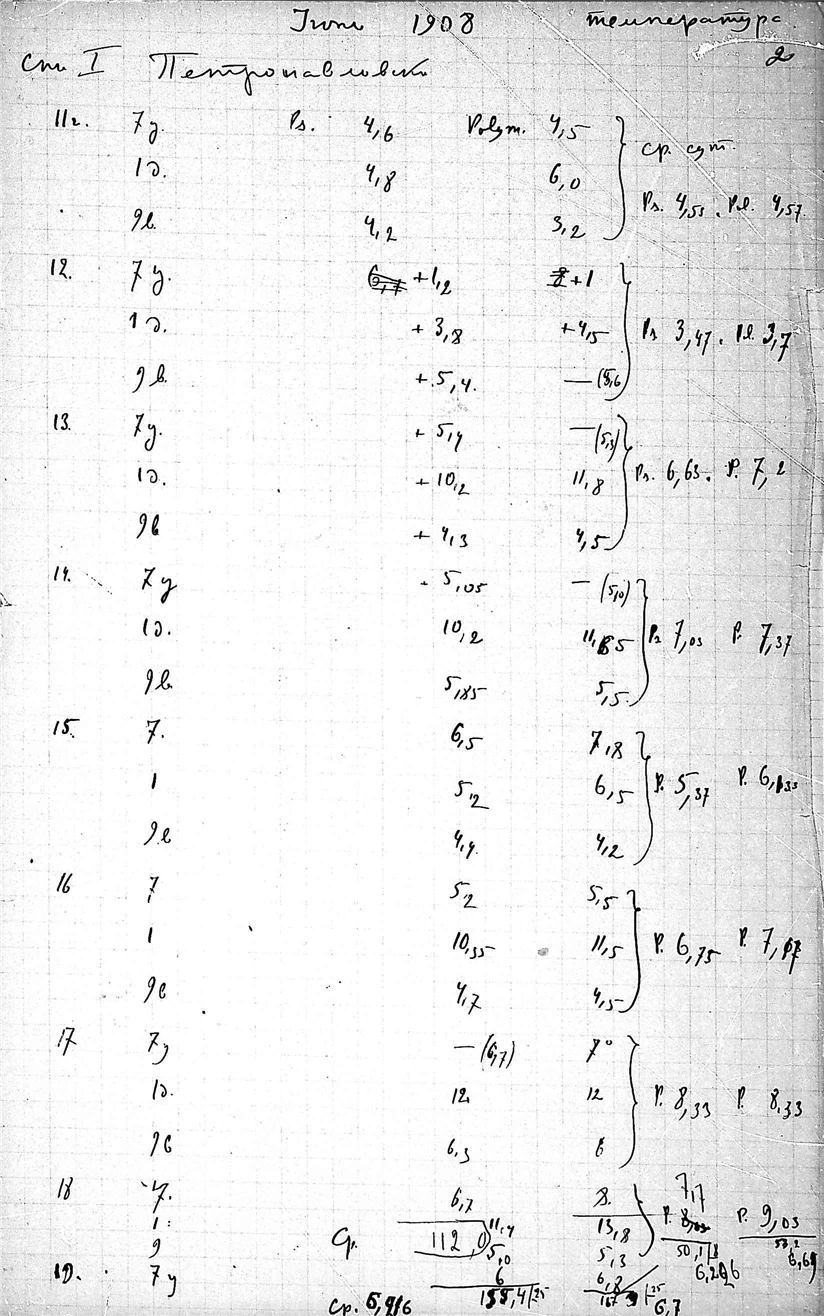 Іюнь 1908 температура
2
Спи I Петропавловскъ
11г. 7у. Ps. 4,6 Polym. 4,5 ср. сут.
1д. 4,8 6,0
Ps. 4,53. Pol. 4,57
9в. 4,2 3,2
12. 7у. +1,2 +1
1д. +3,8 +4,5 Ps 3,47. Pol. 3,7
9в. +5,4. — (5,6)
13. 7у. +5,4 — (5,3)
1д. +10,2 11,8 Ps. 6,63. P. 7,2
9в +4,3 4,5
14. 7у 5,05 — (5,0)
1д. 10,2 11,65 Ps 7,03 P. 7,37
9в 5,85 5,5
15. 7. 6,5 7,8
1 5,2 6,5 P. 5,37 P. 6,
9.в 4,4. 4,2
16 7 5,2 5,5
1 10,35 11,5 P. 6,75 P. 7,17
9в 4,7 4,5
17 7у — (6,7) 7°
1д. 12 12 P. 8,33 P. 8,33
9в 6,3 6
18 7. 6,7 8. 7,17
1. 11,4 13,8 P. P. 9,03
9 Ср. 112,0 5,0 5,3 50,1
19. 7у 6 6,2
Ср. 155,4 25 25 6,7